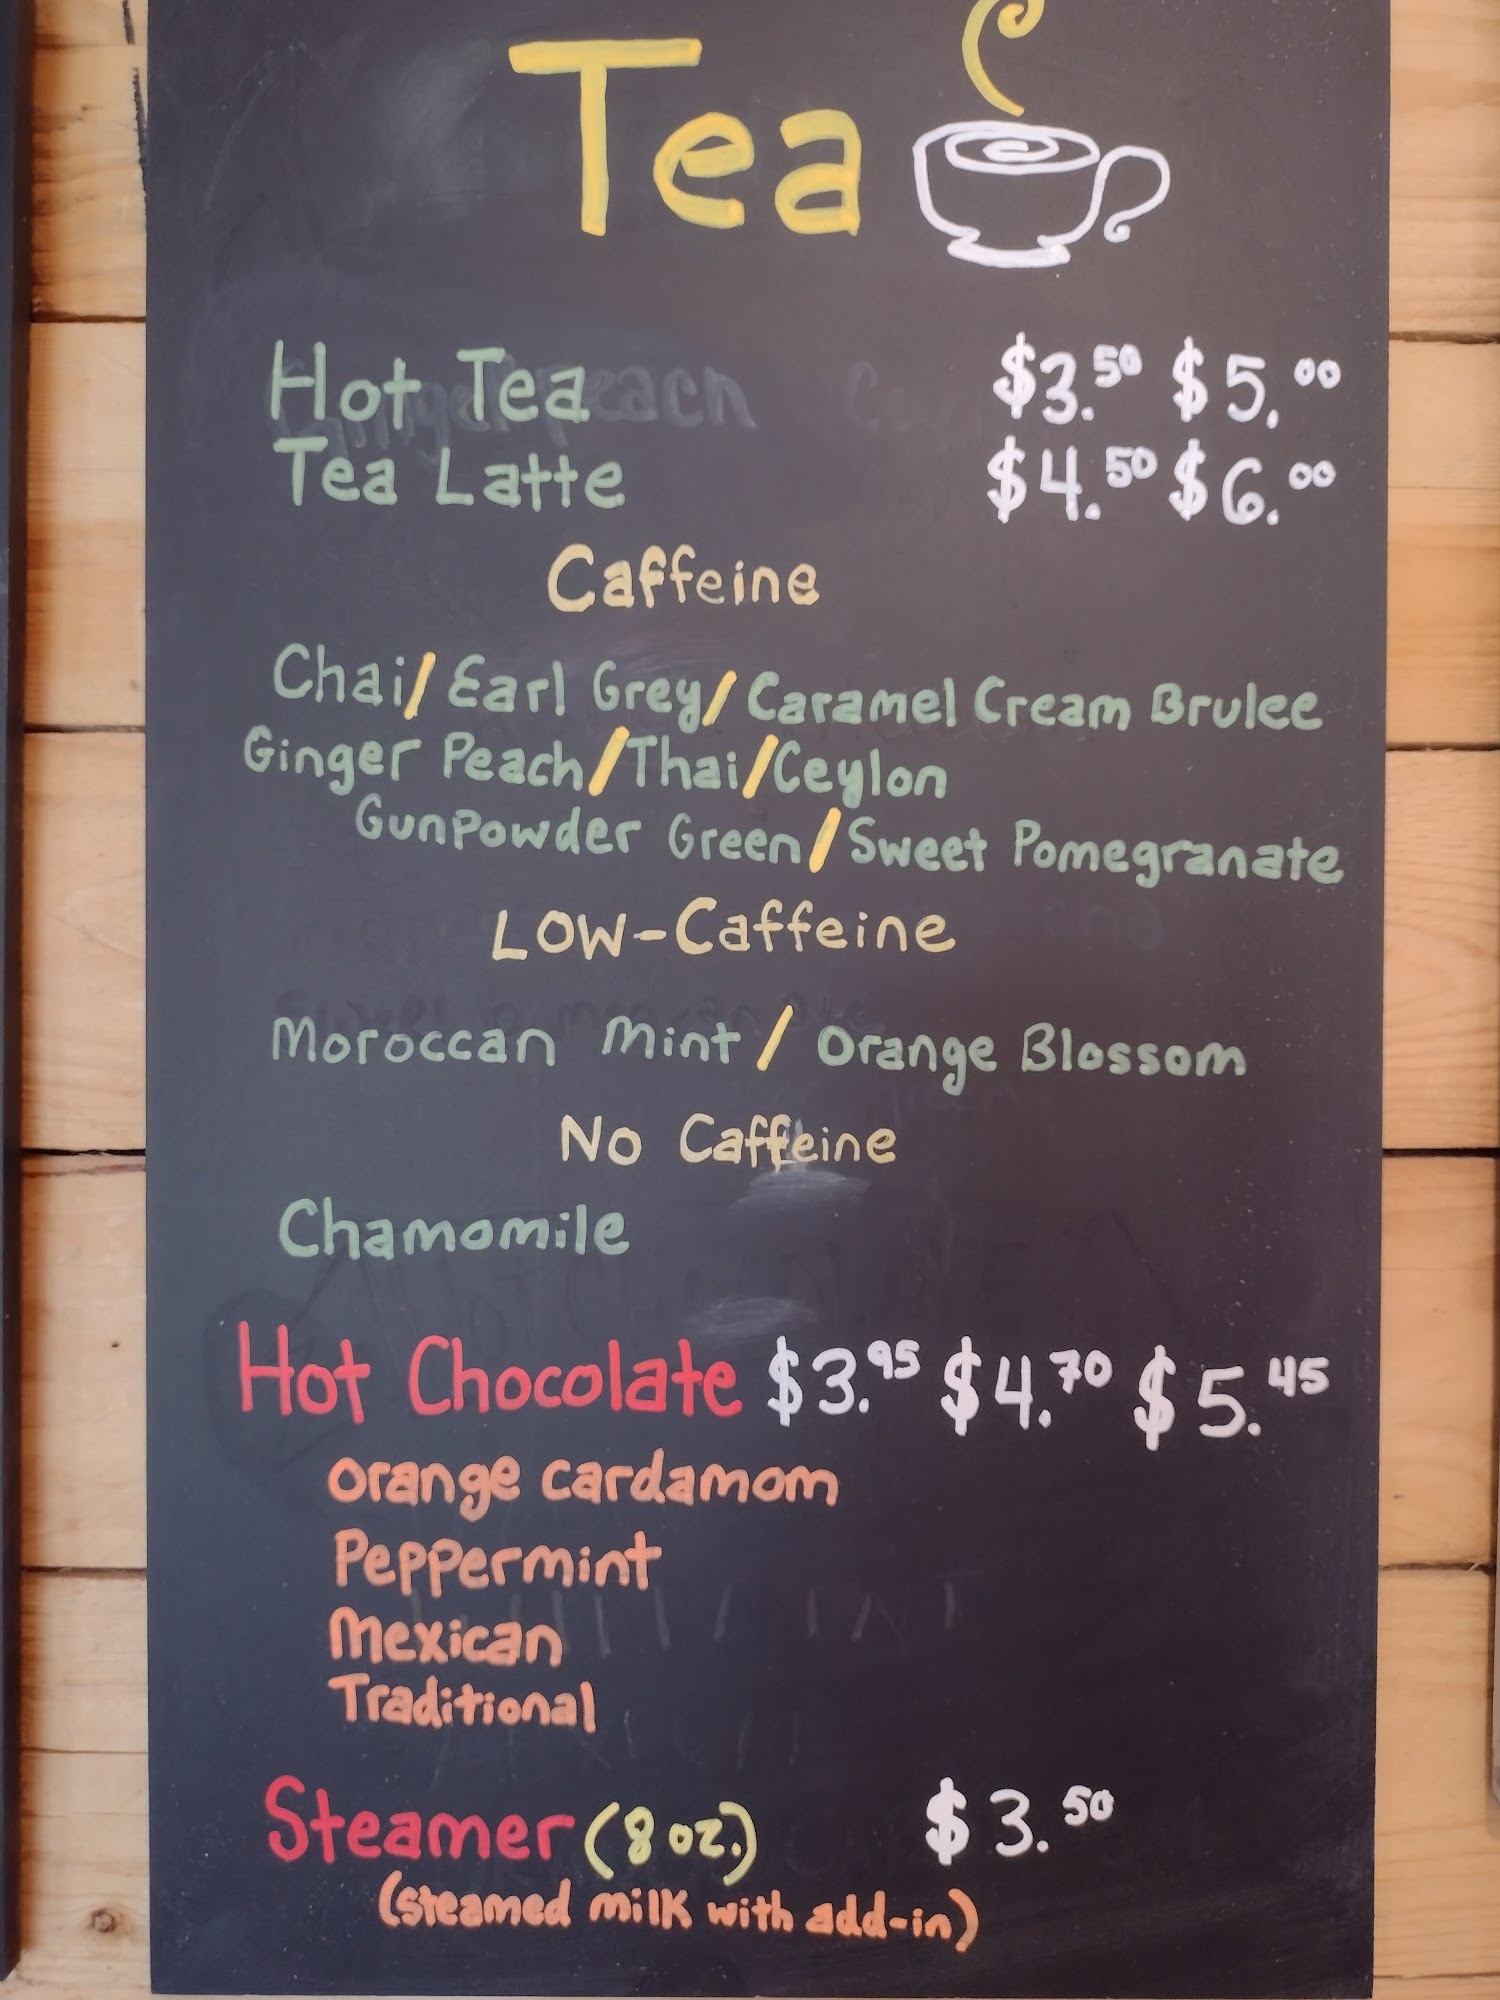 Tea
Hot Tea $3.50 $5.00
Tea Latte $4.50 $6.00
Caffeine
Chai/Earl Grey/Caramel Cream Brulee
Ginger Peach/Thai/Ceylon
Gunpowder Green/Sweet Pomegranate
Low-Caffeine
Moroccan Mint/Orange Blossom
No Caffeine
Chamomile
Hot Chocolate $3.95 $4.70 $5.45
orange cardamom
Peppermint
Mexican
Traditional
Steamer (8 oz.) $3.50
(steamed milk with add-in)